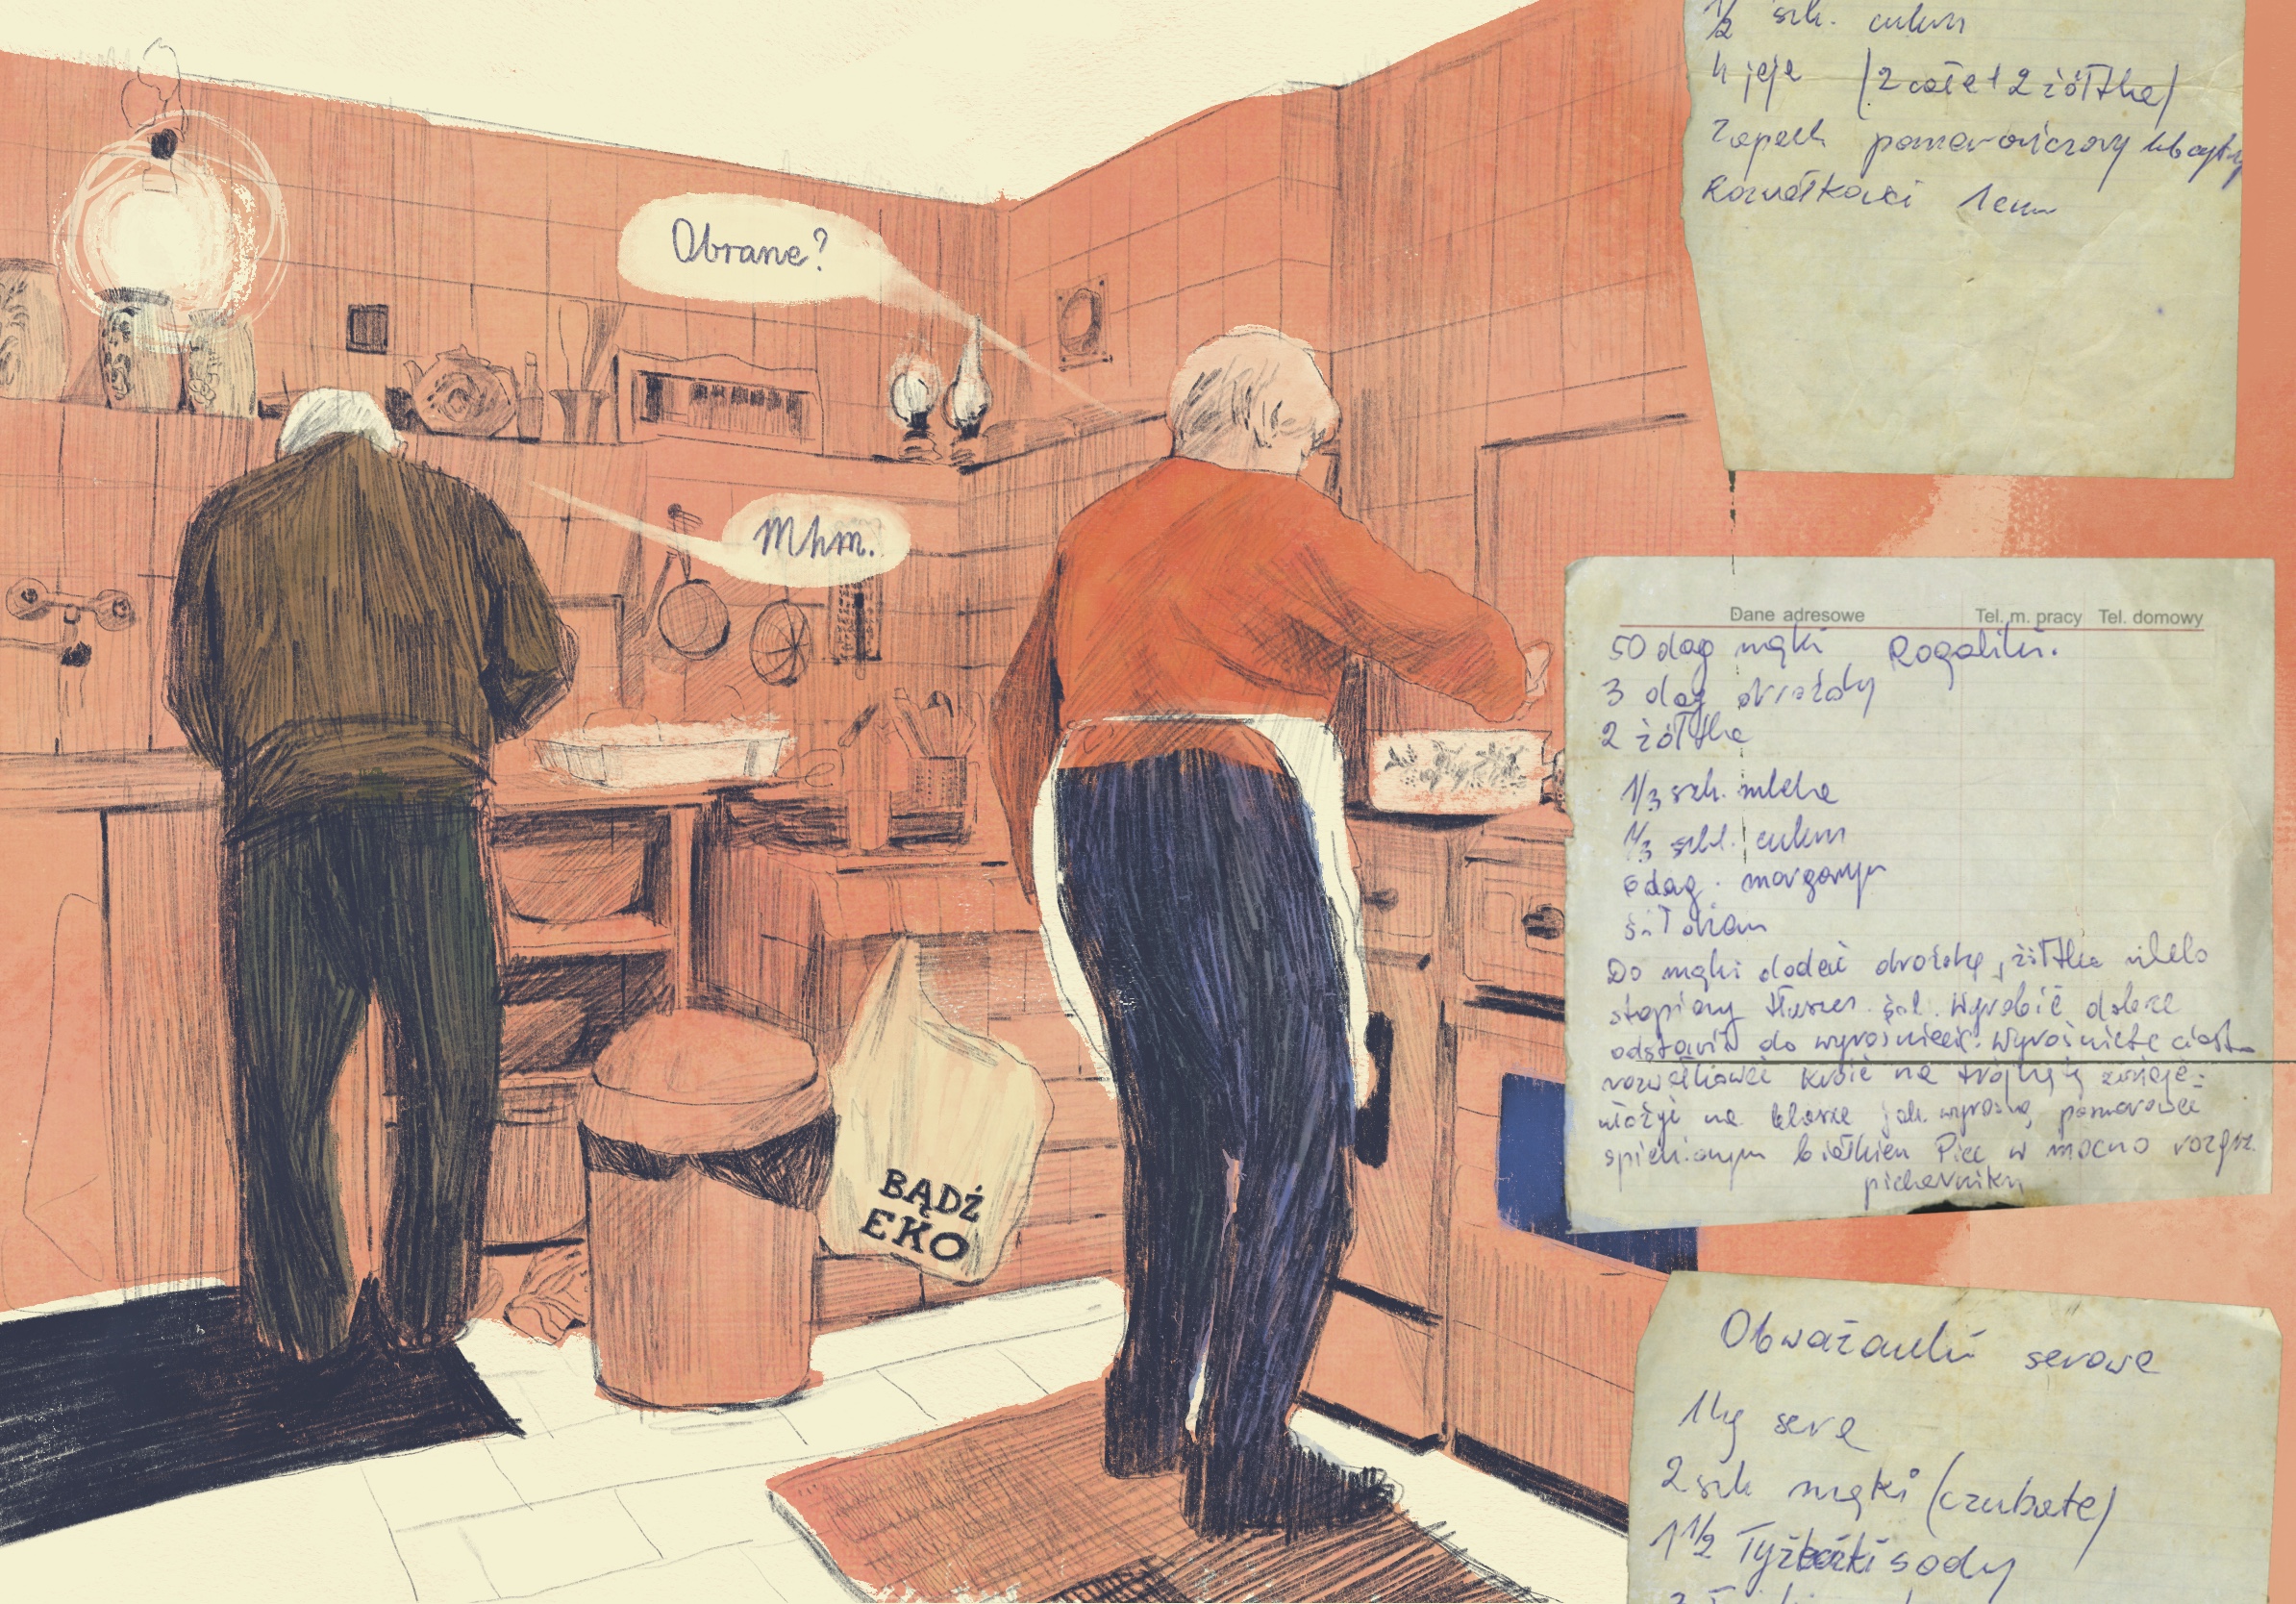 Obrane?
Mhm.
BĄDŹ
EKO
1/2 szk. cukru
4 jeje (2 całe + 2 żółtka)
Zapach pomarańczowy lub cytry
Rozwałkować 1 cm
Dane adresowe Tel. m. pracy Tel. domowy
50 dag mąki Rogaliki.
3 dag drożdży
2 żółtka
1/3 szk. mleka
1/3 szkl. cukru
6 dag. margaryn
Do mąki dodać drożdże, żółtka mleko
stopiony tłuszcz. sól. Wyrobić dobrze
odstawić do wyrośnięcia. Wyrośnięte ciasto
rozwałkować kroić na trójkąty zwijać
ułożyć na blasze jak wyrosną, posmarować
spienionym białkiem Piec w mocno rozgrz.
piekarniku
Obważanki serowe
1 kg sera
2 szk mąki (czubate)
1 1/2 łyżeczki sody